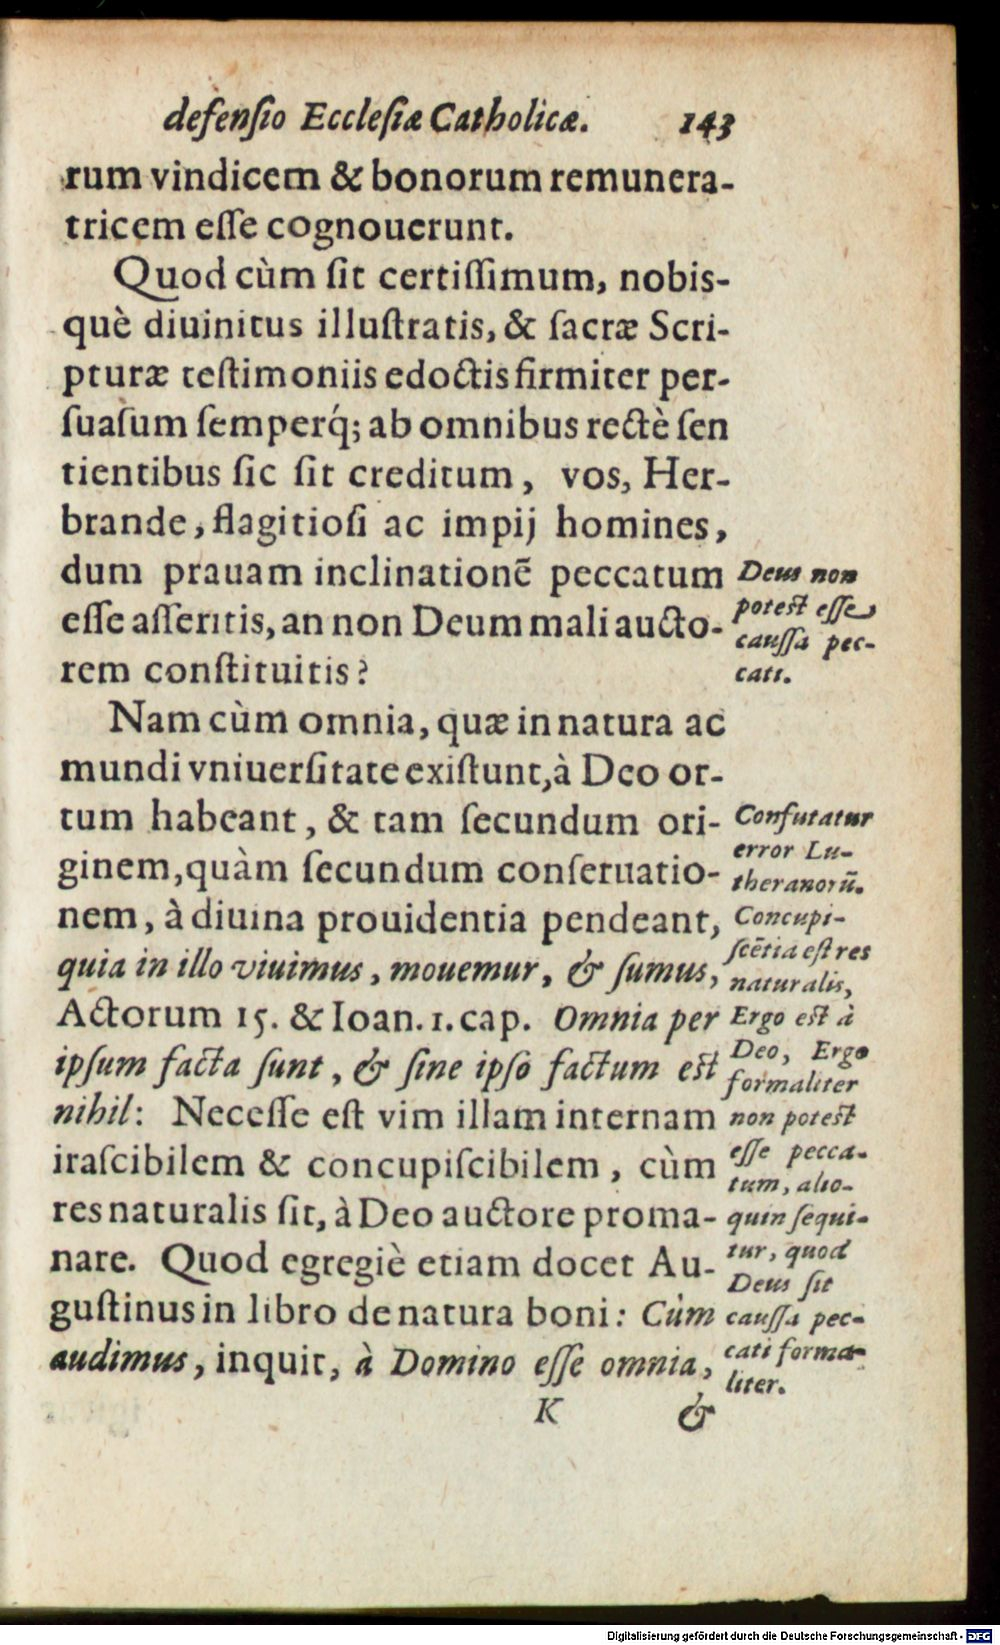 defenſio Eccleſiæ Catholicæ. 143
rum vindicem & bonorum remunera-
tricem eſſe cognouerunt.
Quod cùm ſit certiſſimum, nobis-
què diuinitus illuſtratis, & ſacræ Scri-
pturæ teſtimoniis edoctis firmiter per-
ſuaſum ſemperq́; ab omnibus rectè ſen
tientibus ſic ſit creditum, vos, Her-
brande, flagitioſi ac impij homines,
dum prauam inclinationẽ peccatum
eſſe aſſeritis, an non Deum mali aucto-
rem conſtituitis?
Nam cùm omnia, quæ in natura ac
mundi vniuerſitate exiſtunt, à Deo or-
tum habeant, & tam ſecundum ori-
ginem, quàm ſecundum conſeruatio-
nem, à diuina prouidentia pendeant,
quia in illo viuimus, mouemur, & ſumus,
Actorum 15. & Ioan. 1. cap. Omnia per
ipſum facta ſunt, & ſine ipſo factum eſt
nihil: Neceſſe eſt vim illam internam
iraſcibilem & concupiſcibilem, cùm
res naturalis ſit, à Deo auctore proma-
nare. Quod egregiè etiam docet Au-
guſtinus in libro de natura boni: Cùm
audimus, inquit, à Domino eſſe omnia,
K &
Deus non
poteſt eſſe
cauſſa pec-
cati.
Confutatur
error Lu-
theranorũ.
Concupi-
ſcẽtia eſt res
naturalis,
Ergo eſt à
Deo, Ergo
formaliter
non poteſt
eſſe pecca-
tum, alio-
quin ſequi-
tur, quod
Deus ſit
cauſſa pec-
cati forma-
liter.
Digitalisierung gefördert durch die Deutsche Forschungsgemeinschaft - DFG